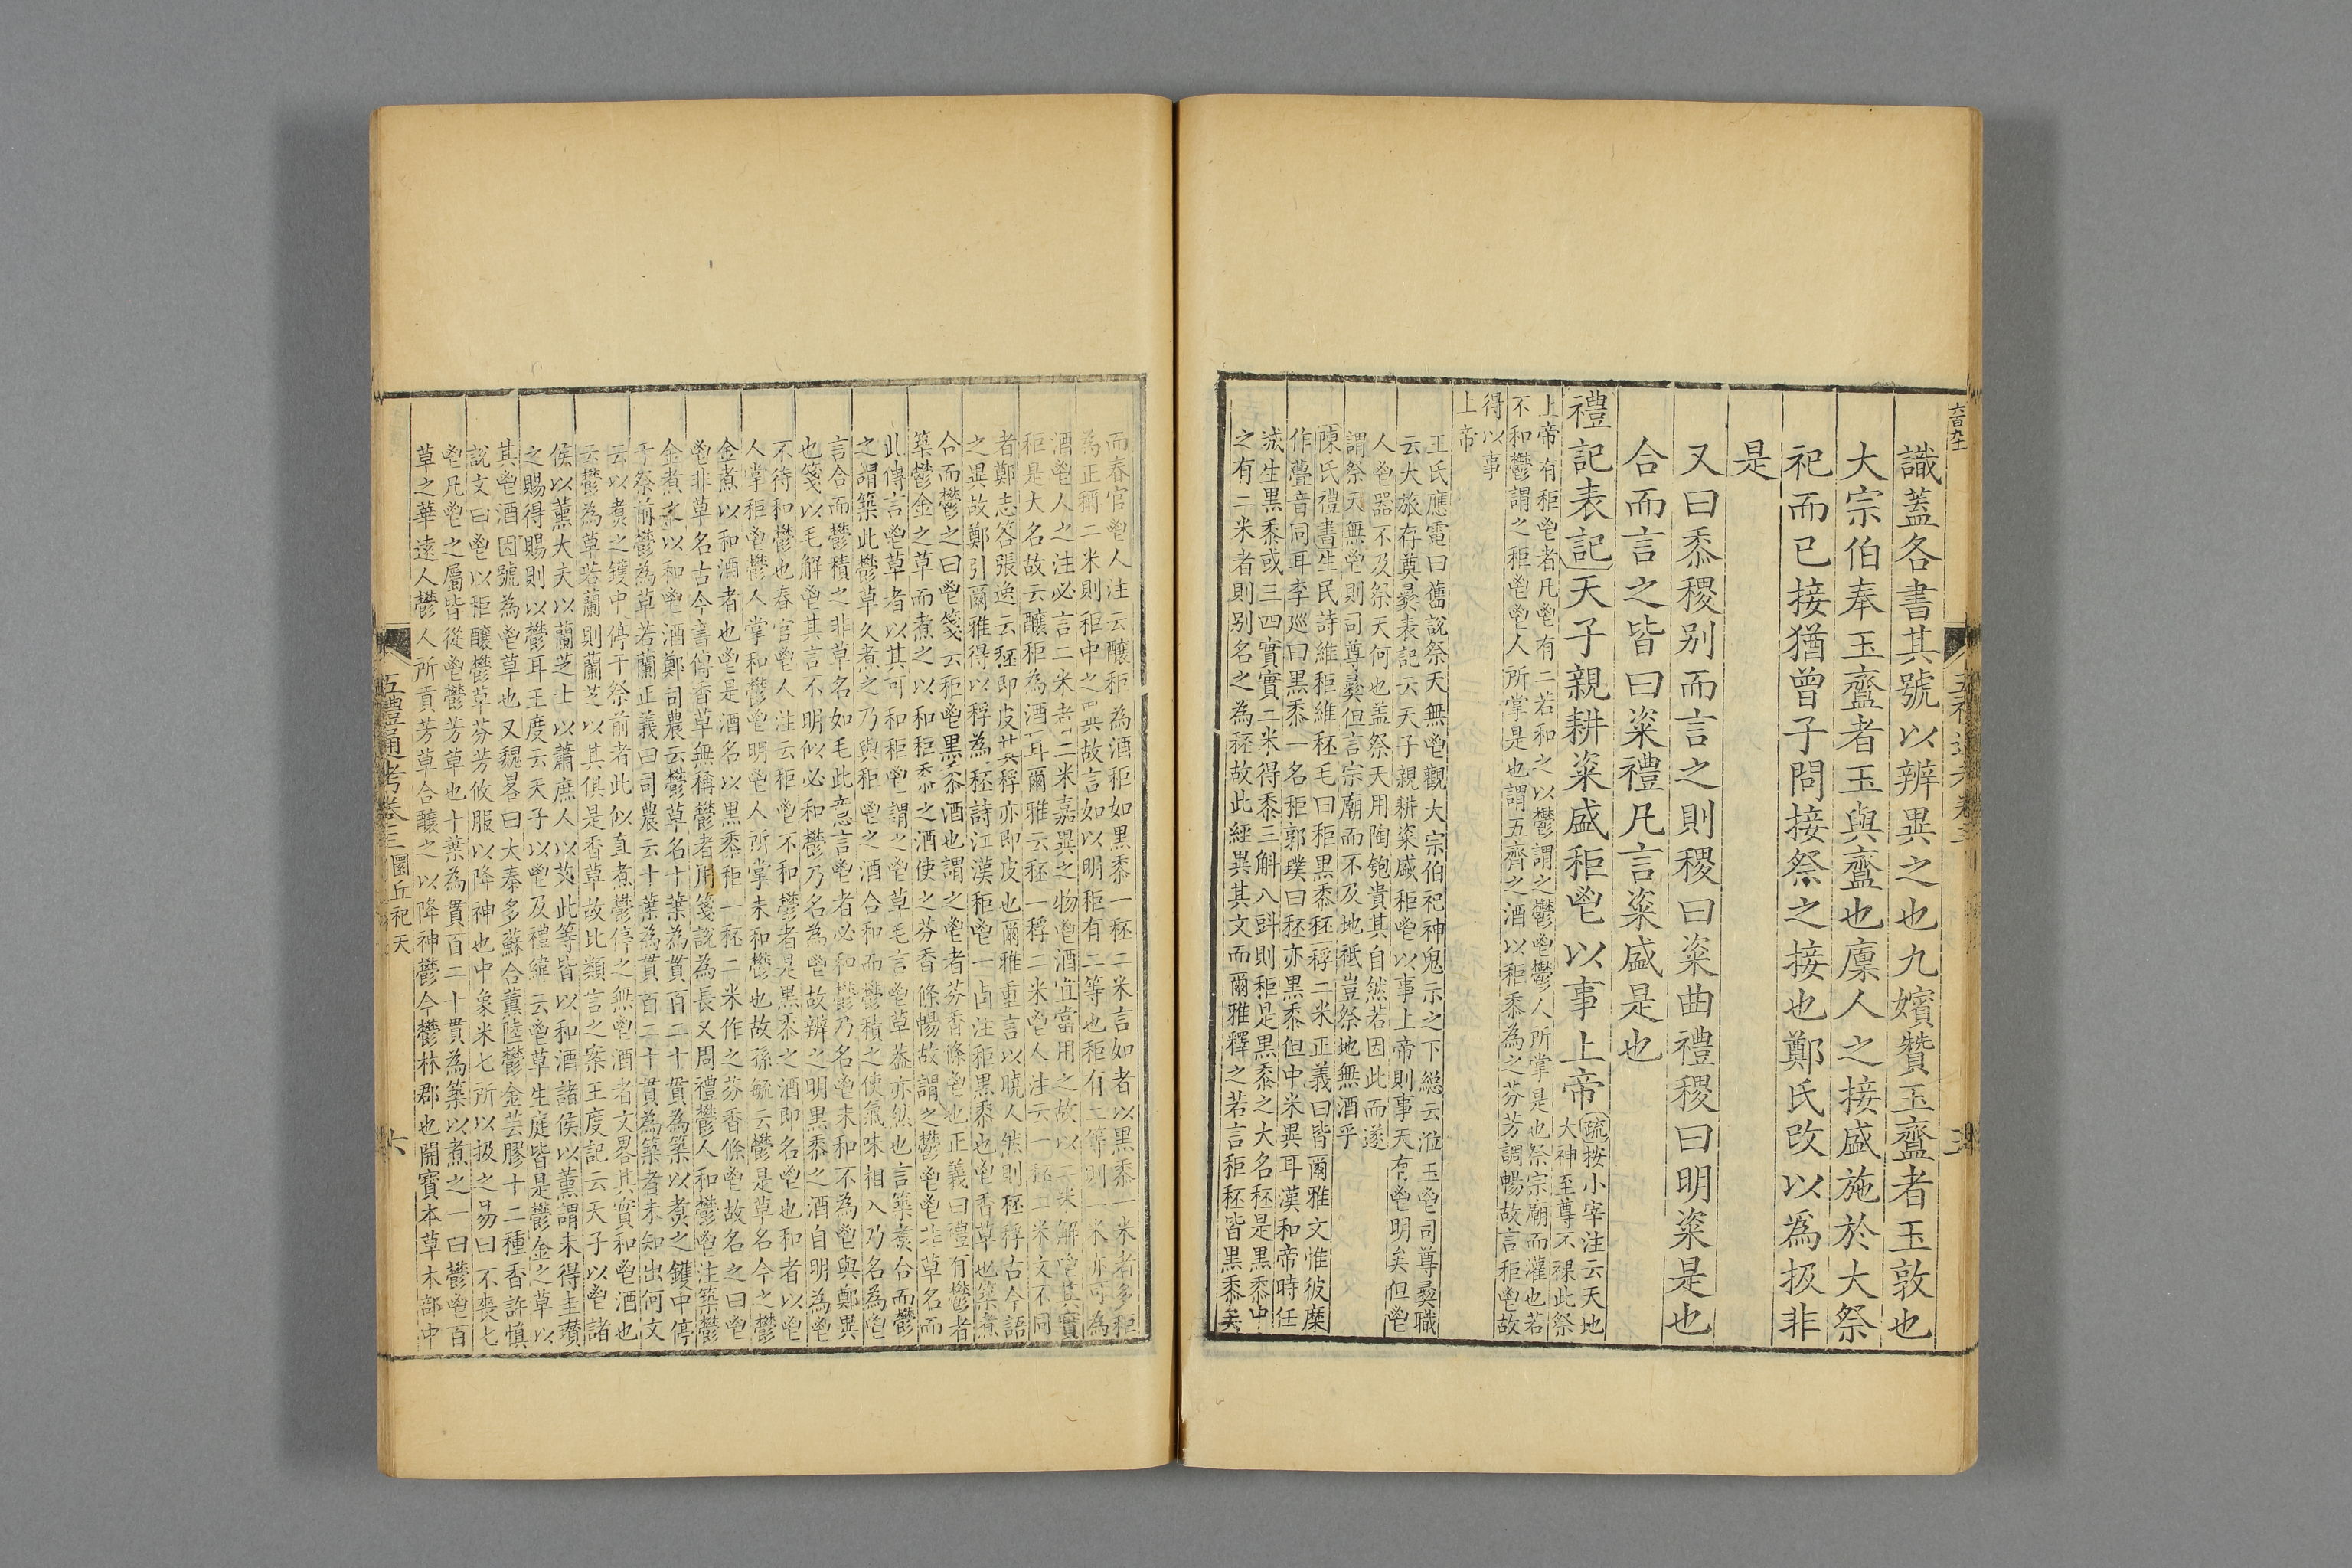 六百九十
識蓋各書其號以辨異之也九嬪贊玉齍者玉敦也
大宗伯奉玉齍者玉與齍也廩人之接盛施於大祭
祀而已接猶曾子問接祭之接也鄭氏改以爲扱非
是
又曰黍稷别而言之則稷曰粢曲禮稷曰明粢是也
合而言之皆曰粢禮凡言粢盛是也
禮記表記天子親耕粢盛秬鬯以事上帝
疏按小宰注云天地
大神至尊不祼此祭
上帝有秬鬯者凡鬯有二若和之以鬱謂之鬱鬯鬱人所掌是也祭宗廟而灌也若
不和鬱謂之秬鬯鬯人所掌是也謂五齊之酒以秬黍為之芬芳調暢故言秬鬯故
得以事
上帝
王氏應電曰舊說祭天無鬯觀大宗伯祀神鬼示之下緫云涖玉鬯司尊彝職
云大旅存奠彝表記云天子親耕粢盛秬鬯以事上帝則事天有鬯明矣但鬯
人鬯器不及祭天何也盖祭天用陶匏貴其自然若因此而遂
謂祭天無鬯則司尊彝但言宗廟而不及地祗豈祭地無酒乎
陳氏禮書生民詩維秬維秠毛曰秬黑黍秠一稃二米正義曰皆爾雅文惟彼穈
作虋音同耳李巡曰黑黍一名秬郭璞曰秠亦黑黍但中米異耳漢和帝時任
城生黑黍或三四實實二米得黍三斛八㪷則秬是黑黍之大名秠是黑黍中
之有二米者則别名之為秠故此經異其文而爾雅釋之若言秬秠皆黑黍矣
而春官鬯人注云釀秬為酒秬如黑黍一秠二米言如者以黑黍一米者多秬
為正稱二米則秬中之異故言如以明秬有二等也秬有二等則一米亦可為
酒鬯人之注必言二米者二米嘉異之物鬯酒宜當用之故以二米解鬯其實
秬是大名故云釀秬為酒耳爾雅云秠一稃二米鬯人注云一秠二米文不同
者鄭志答張逸云秠即皮其稃亦即皮也爾雅重言以曉人然則秠稃古今語
之異故鄭引爾雅得以稃為秠詩江漢秬鬯一卣注秬黑黍也鬯香草也築煮
合而鬱之曰鬯箋云秬鬯黑黍酒也謂之鬯者芬香條鬯也正義曰禮有鬱者
築鬱金之草而煮之以和秬黍之酒使之芬香條暢故謂之鬱鬯鬯非草名而
此傳言鬯草者以其可和秬鬯謂之鬯草毛言鬯草葢亦然也言築煑合而鬱
之謂築此鬱草久煮之乃與秬鬯之酒合和而鬱積之使氣味相入乃名為鬯
言合而鬱積之非草名如毛此意言鬯者必和鬱乃名鬯未和不為鬯與鄭異
也箋以毛解鬯其言不明似必和鬱乃名為鬯故辨之明黑黍之酒自明為鬯
不待和鬱也春官鬯人注云秬鬯不和鬱者是黑黍之酒即名鬯也和者以鬯
人掌秬鬯鬱人掌和鬱鬯明鬯人所掌未和鬱也故孫毓云鬱是草名今之鬱
金煮以和酒者也鬯是酒名以黑黍秬一秠二米作之芬香條鬯故名之曰鬯
鬯非草名古今書傳香草無稱鬱者用箋說為長又周禮鬱人和鬱鬯注築鬱
金煮之以和鬯酒鄭司農云鬱草名十葉為貫百二十貫為築以煑之鑊中停
于祭前鬱為草若蘭正義曰司農云十葉為貫百二十貫為築者未知出何文
云以煑之鑊中停于祭前者此似直煮鬱停之無鬯酒者文畧其實和鬯酒也
云鬱為草若蘭則蘭芝以其俱是香草故比類言之案王度記云天子以鬯諸
侯以薰大夫以蘭芝士以蕭庶人以艾此等皆以和酒諸侯以薰謂未得圭瓚
之賜得賜則以鬱耳王度云天子以鬯及禮緯云鬯草生庭皆是鬱金之草以
其鬯酒因號為鬯草也又魏畧曰大秦多蘇合薰陸鬱金芸膠十二種香許慎
說文曰鬯以秬釀鬱草芬芳攸服以降神也中象米匕所以扱之易曰不喪匕
鬯凡鬯之屬皆從鬯鬱芳草也十葉為貫百二十貫為築以煮之一曰鬱鬯百
草之華遠人鬱人所貢芳草合釀之以降神鬱今鬱林郡也開寶本草木部中
五禮通考卷三 圜丘祀天
六